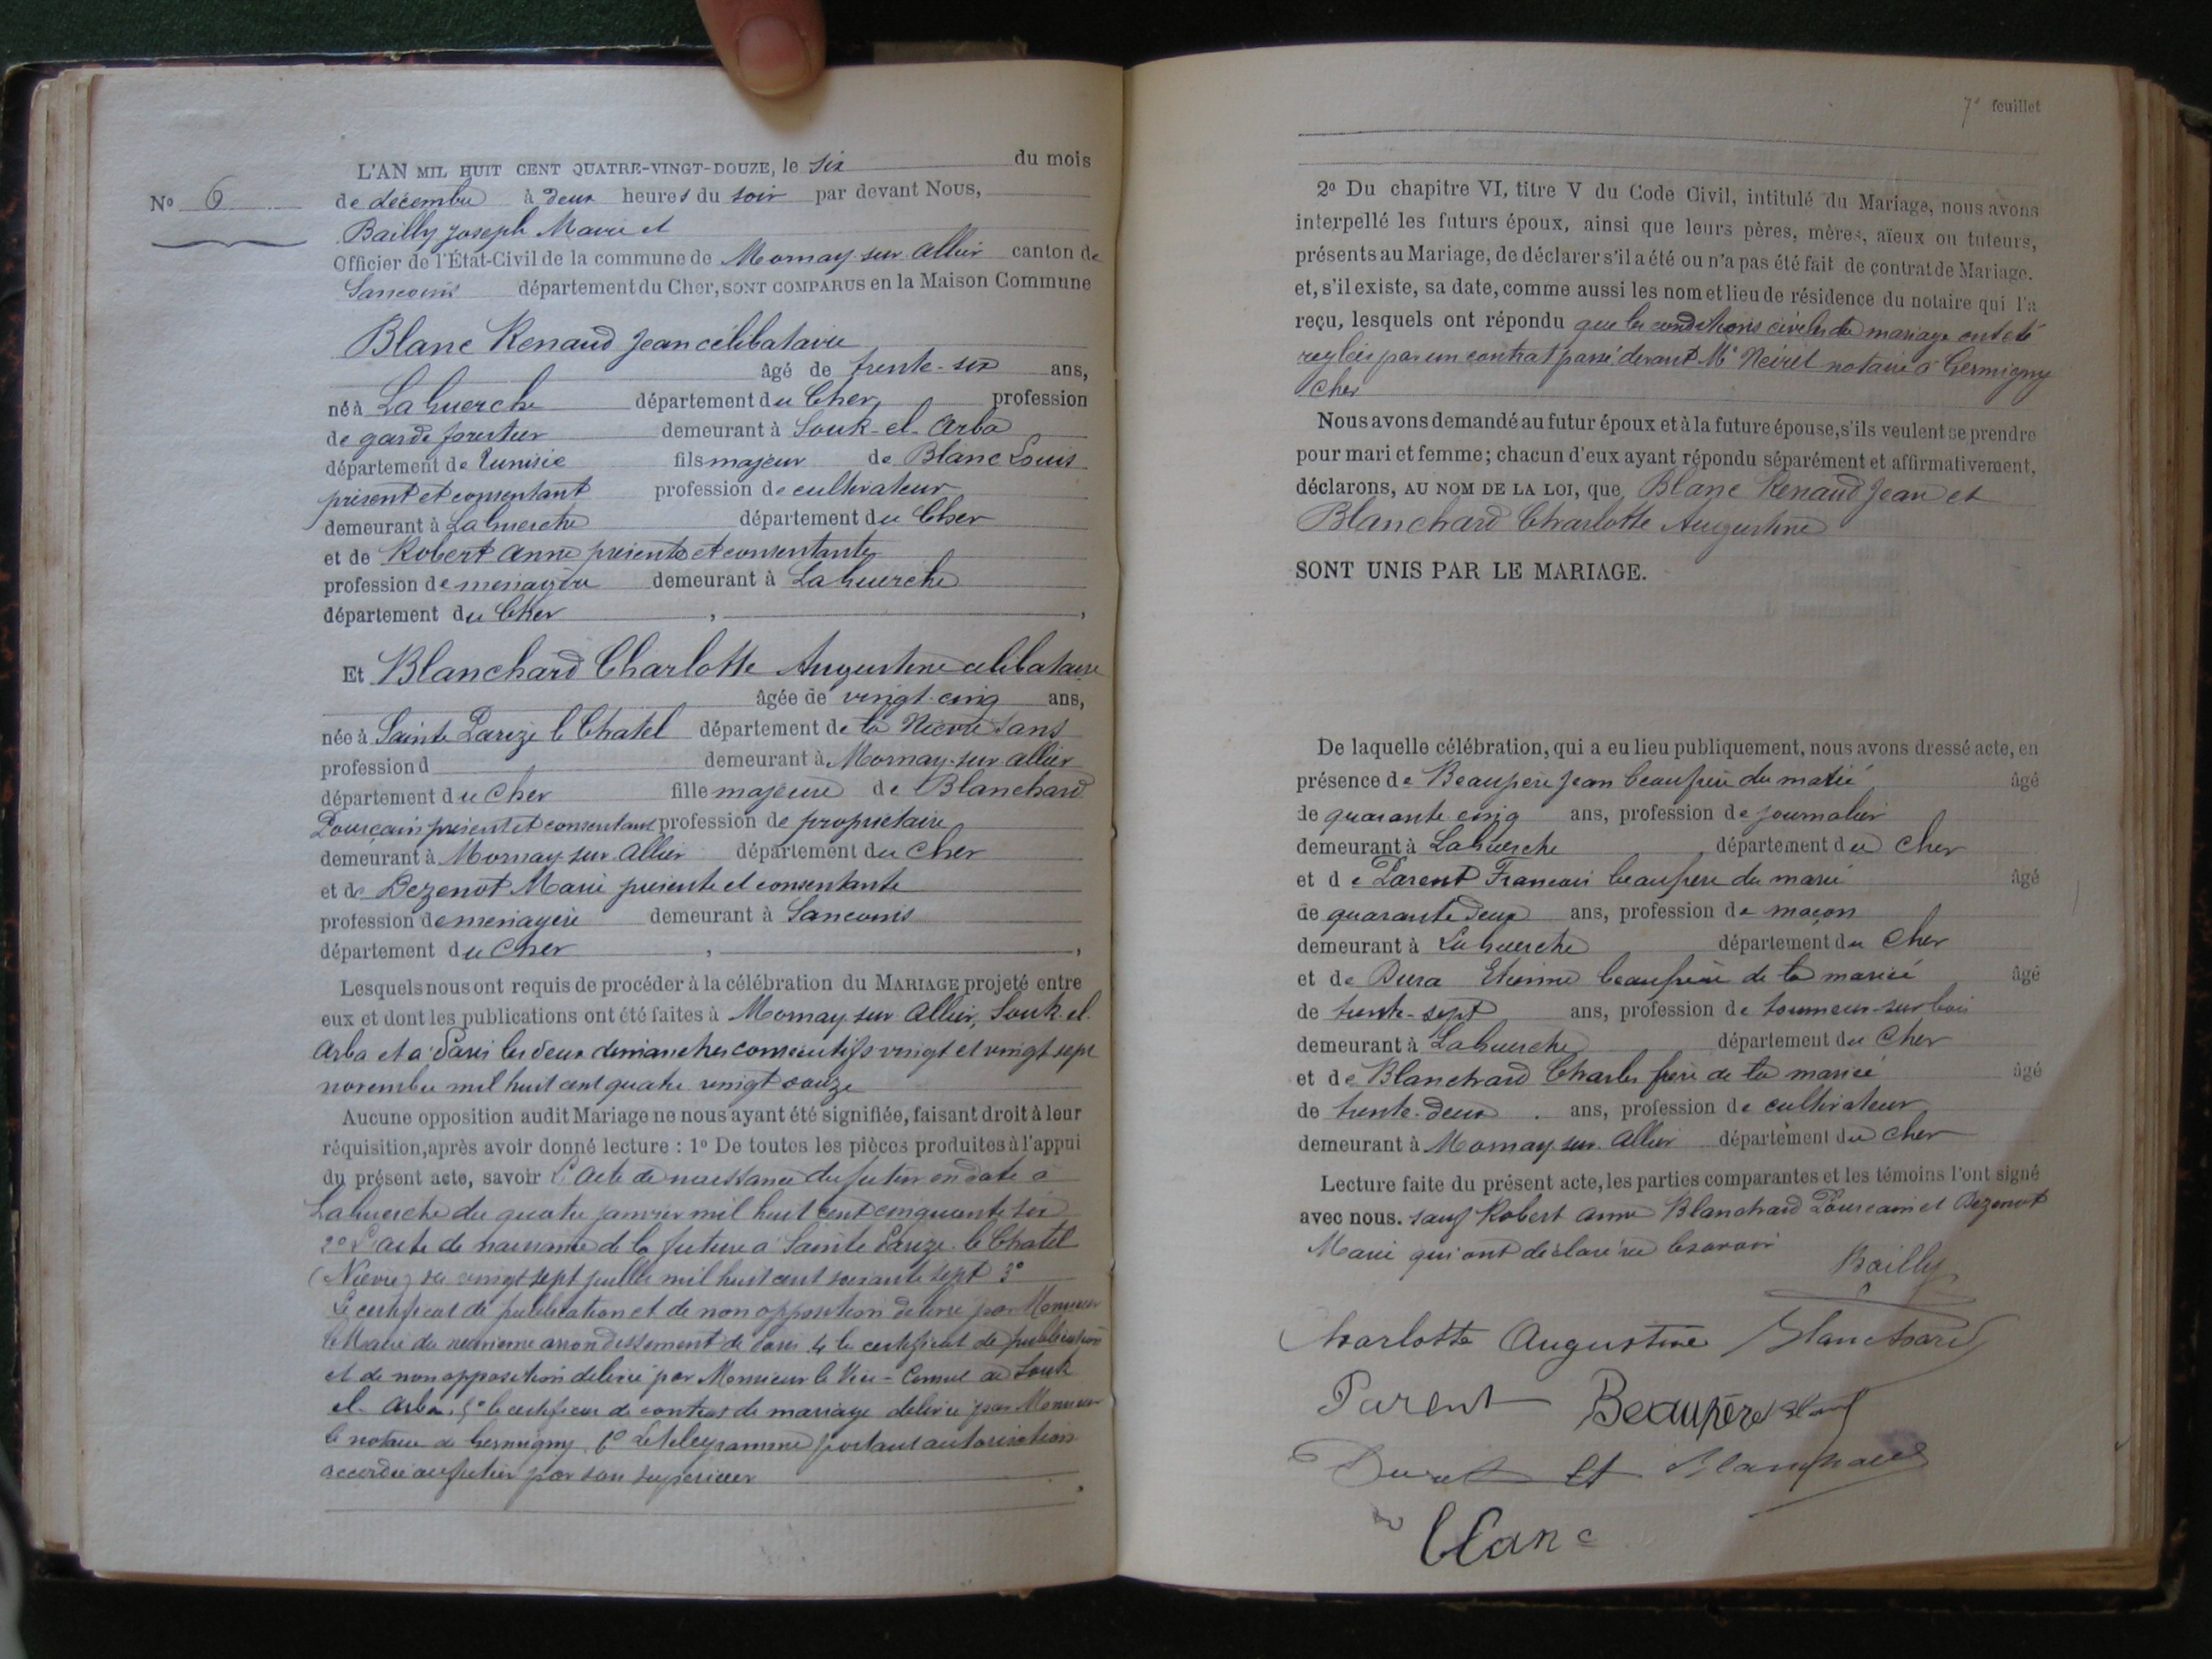 L'AN MIL HUIT CENT QUATRE-VINGT-DOUZE, le six du mois
No 6
de décembre à deux heures du soir par devant Nous,
Bailly Joseph Marie et
Officier de l'État-Civil de la commune de Mornay-sur-Allier canton de
Sancoins département du Cher, SONT COMPARUS en la Maison Commune
Blanc Renaud Jean célibataire
âgé de trente-six ans,
né à La Guerche département du Cher, profession
de garde forestier demeurant à Souk-el-Arba
département de Tunisie fils majeur de Blanc Louis
présent et consentant profession de cultivateur
demeurant à La Guerche département du Cher
et de Robert Anne présente et consentante
profession de menagère demeurant à La Guerche
département du Cher , ,
Et Blanchard Charlotte Augustine celibataire
âgée de vingt-cinq ans,
née à Sainte Parize le Chatel département de la Nièvre sans
profession d demeurant à Mornay-sur-Allier
département du Cher fille majeure de Blanchard
Pourçain présent et consentant profession de propriétaire
demeurant à Mornay-sur-Allier département du Cher
et de Dezenot Marie présente et consentante
profession de menagère demeurant à Sancoins
département du Cher , ,
Lesquels nous ont requis de procéder à la célébration du MARIAGE projeté entre
eux et dont les publications ont été faites à Mornay-sur-Allier, Souk-el-
Arba et à Paris les deux dimanches consécutifs vingt et vingt sept
novembre mil huit cent quatre vingt douze
Aucune opposition audit Mariage ne nous ayant été signifiée, faisant droit à leur
réquisition, après avoir donné lecture : 1o De toutes les pièces produites à l'appui
du présent acte, savoir L'acte de naissance du futur en date à
La Guerche du quatre janvier mil huit cent cinquante six
2o L'acte de naissance de la future à Sainte Parize-le Chatel
(Nièvre) du vingt sept juillet mil huit cent soixante sept 3o
Le certificat de publication et de non opposition délivré par Monsieur
le Maire du neuvieme arrondissement de Paris 4 le certificat de publication
et de non opposition délivré par Monsieur le Vice-Consul de Souk
el-Arba. 5o le certificat de contrat de mariage délivré par Monsieur
le notaire de Germigny. 6o Le télégramme portant autorisation
accordée au futur par son supérieur
7e feuillet
2o Du chapitre VI, titre V du Code Civil, intitulé du Mariage, nous avons
interpellé les futurs époux, ainsi que leurs pères, mères, aïeux ou tuteurs,
présents au Mariage, de déclarer s'il a été ou n'a pas été fait de contrat de Mariage.
et, s'il existe, sa date, comme aussi les nom et lieu de résidence du notaire qui l'a
reçu, lesquels ont répondu que les conditions civiles du mariage ont été
reglées par un contrat passé devant Me notaire à Germigny
Cher
Nous avons demandé au futur époux et à la future épouse, s'ils veulent se prendre
pour mari et femme; chacun d'eux ayant répondu séparément et affirmativement,
déclarons, AU NOM DE LA LOI, que Blanc Renaud Jean et
Blanchard Charlotte Augustine
SONT UNIS PAR LE MARIAGE.
De laquelle célébration, qui a eu lieu publiquement, nous avons dressé acte, en
présence de Beaupere Jean beaufrère du marié âgé
de quarante cinq ans, profession de journalier
demeurant à La Guerche département du Cher
et de Parent Francois beaufrere du marié âgé
de quarante deux ans, profession de maçon
demeurant à La Guerche département du Cher
et de Etienne beaufrère de la mariée âgé
de trente-sept ans, profession de tourneur-sur-bois
demeurant à La Guerche département du Cher
et de Blanchard Charles frère de la mariée âgé
de trente-deux ans, profession de cultivateur
demeurant à Mornay-sur-Allier département du Cher
Lecture faite du présent acte, les parties comparantes et les témoins l'ont signé
avec nous. sauf Robert Anne Blanchard Pourcain et Dezenot
Marie qui ont déclaré ne le savoir
Bailly
Charlotte Augustine Blanchard
Parent Beaupère
Blanchard
blanc